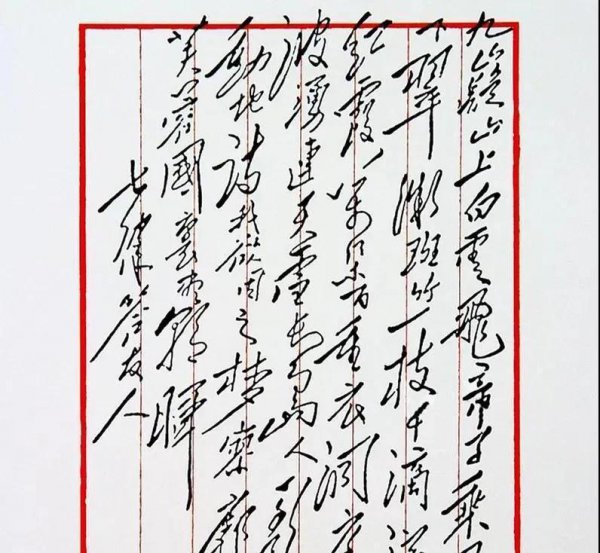 九嶷山上白雲飛帝子乘
下翠微斑竹一枝千滴
紅霞万朵百重衣洞庭
波湧連天雪長島人歌
動地詩我欲因之夢寥廓
芙蓉國裏盡朝暉
七律答友人